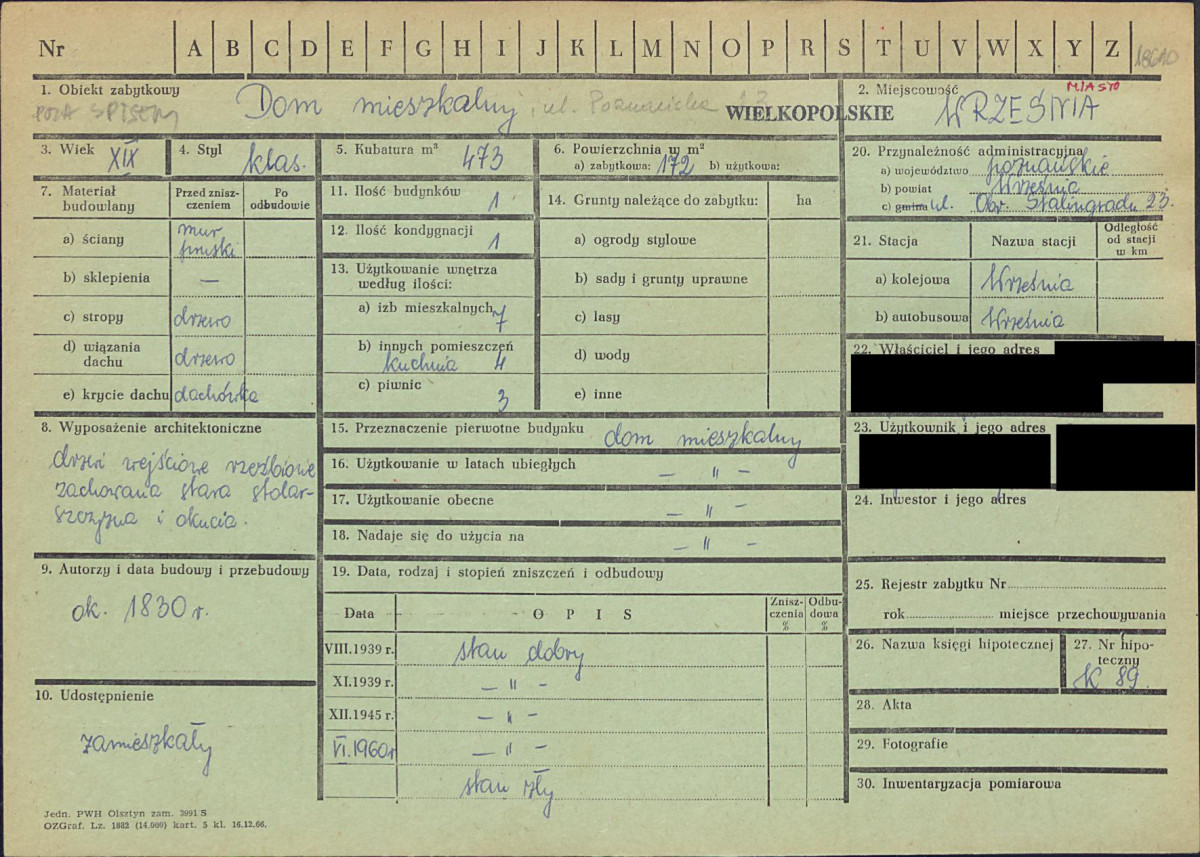 Nr A B C D E F G H I J K L M N O P R S T U V W X Y Z
1. Obiekt zabytkowy
POZA SPISEM
Dom mieszkalny, ul. Poznańska
WIELKOPOLSKIE
2. Miejscowość
MIASTO
WRZEŚNIA
3. Wiek XIX
4. Styl klas.
5. Kubatura m³ 473
6. Powierzchnia w m²
a) zabytkowa: 172 b) użytkowa:
7. Materiał budowlany
Przed zniszczeniem
Po odbudowie
a) ściany mur pruski
b) sklepienia —
c) stropy drzewo
d) wiązania dachu drzewo
e) krycie dachu dachówka
8. Wyposażenie architektoniczne
drzwi wejściowe rzeźbione
zachowana stara stolar-
szczyzna i okucia.
9. Autorzy i data budowy i przebudowy
ok. 1830 r.
10. Udostępnienie
zamieszkały
11. Ilość budynków 1
12. Ilość kondygnacji 1
13. Użytkowanie wnętrza
według ilości:
a) izb mieszkalnych 7
b) innych pomieszczeń
kuchnia 4
c) piwnic 3
14. Grunty należące do zabytku: ha
a) ogrody stylowe
b) sady i grunty uprawne
c) lasy
d) wody
e) inne
15. Przeznaczenie pierwotne budynku dom mieszkalny
16. Użytkowanie w latach ubiegłych — " —
17. Użytkowanie obecne — " —
18. Nadaje się do użycia na — " —
19. Data, rodzaj i stopień zniszczeń i odbudowy
Data O P I S Znisz-czenia % Odbu-dowa %
VIII.1939 r. stan dobry
XI.1939 r. — " —
XII.1945 r. — " —
VI.1960r — " —
stan zły
20. Przynależność administracyjna
a) województwo poznańskie
b) powiat Września
c) gmina ul. Obr. Stalingradu 23.
21. Stacja Nazwa stacji Odległość od stacji w km
a) kolejowa Września
b) autobusowa Września
22. Właściciel i jego adres
23. Użytkownik i jego adres
24. Inwestor i jego adres
25. Rejestr zabytku Nr
rok miejsce przechowywania
26. Nazwa księgi hipotecznej
27. Nr hipo-
teczny
K 89
28. Akta
29. Fotografie
30. Inwentaryzacja pomiarowa
Jedn. PWH Olsztyn zam. 3991 S
OZGraf. Lz. 1882 (14.000) kart. 5 kl. 16.12.66.